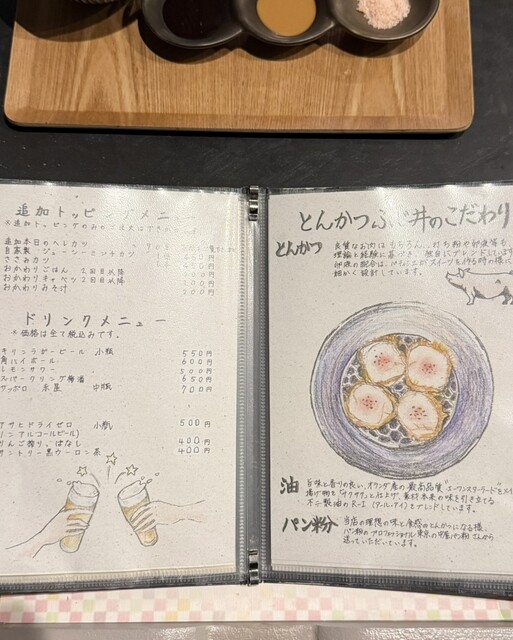 追加トッピングメニュー
追加本日のヘレカツ
ささみカツ
おかわりごはん 2回目以降
おかわりキャベツ 2回目以降
おかわりお味汁
ドリンクメニュー
※価格は全て税込みです。
キリンラガービール 小瓶 550円
角ハイボール 600円
レモンサワー 500円
スパークリング梅酒 650円
サッポロ 赤星 中瓶 700円
アサヒドライゼロ 小瓶 500円
(ノンアルコールビール)
りんご搾り、ぱなし 400円
サントリー黒ウーロン茶 400円
とんかつふじ井のこだわり
とんかつ
良質なお肉はもちろん、打ち粉や卵液等も
理論と経験に基づき、独自にブレンドしています
卵液の配合は、パティシエがスイーツを作る時の様に
細かく設計しています。
油
旨味と香りの良い、オランダ産の最高品質
揚げ物を「サクサク」と仕上げ、素材本来の味を引き立てる
をブレンドしています。
パン粉
当店の理想の味と食感のとんかつになる様、
パン粉のプロフェッショナル東京の中屋パン粉さんから
送っていただいています。